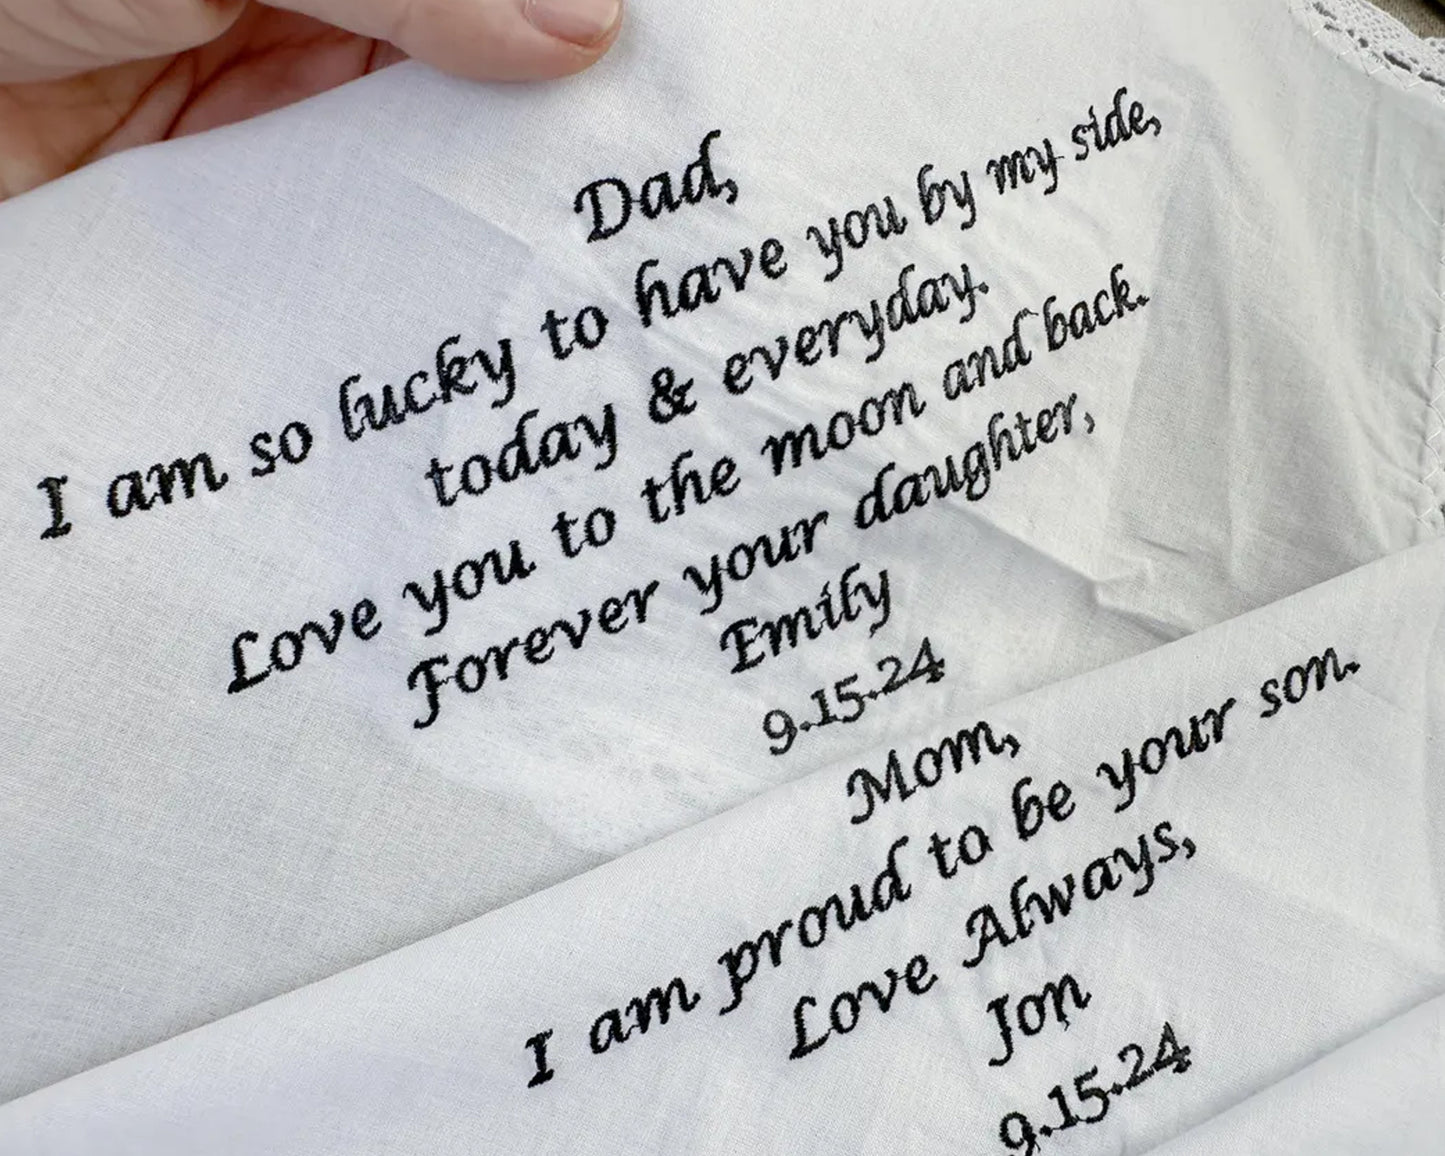 Dad,
I am so lucky to have you by my side,
today & everyday.
Love you to the moon and back.
Forever your daughter,
Emily
9.15.24
Mom,
I am proud to be your son.
Love Always,
Jon
9.15.24